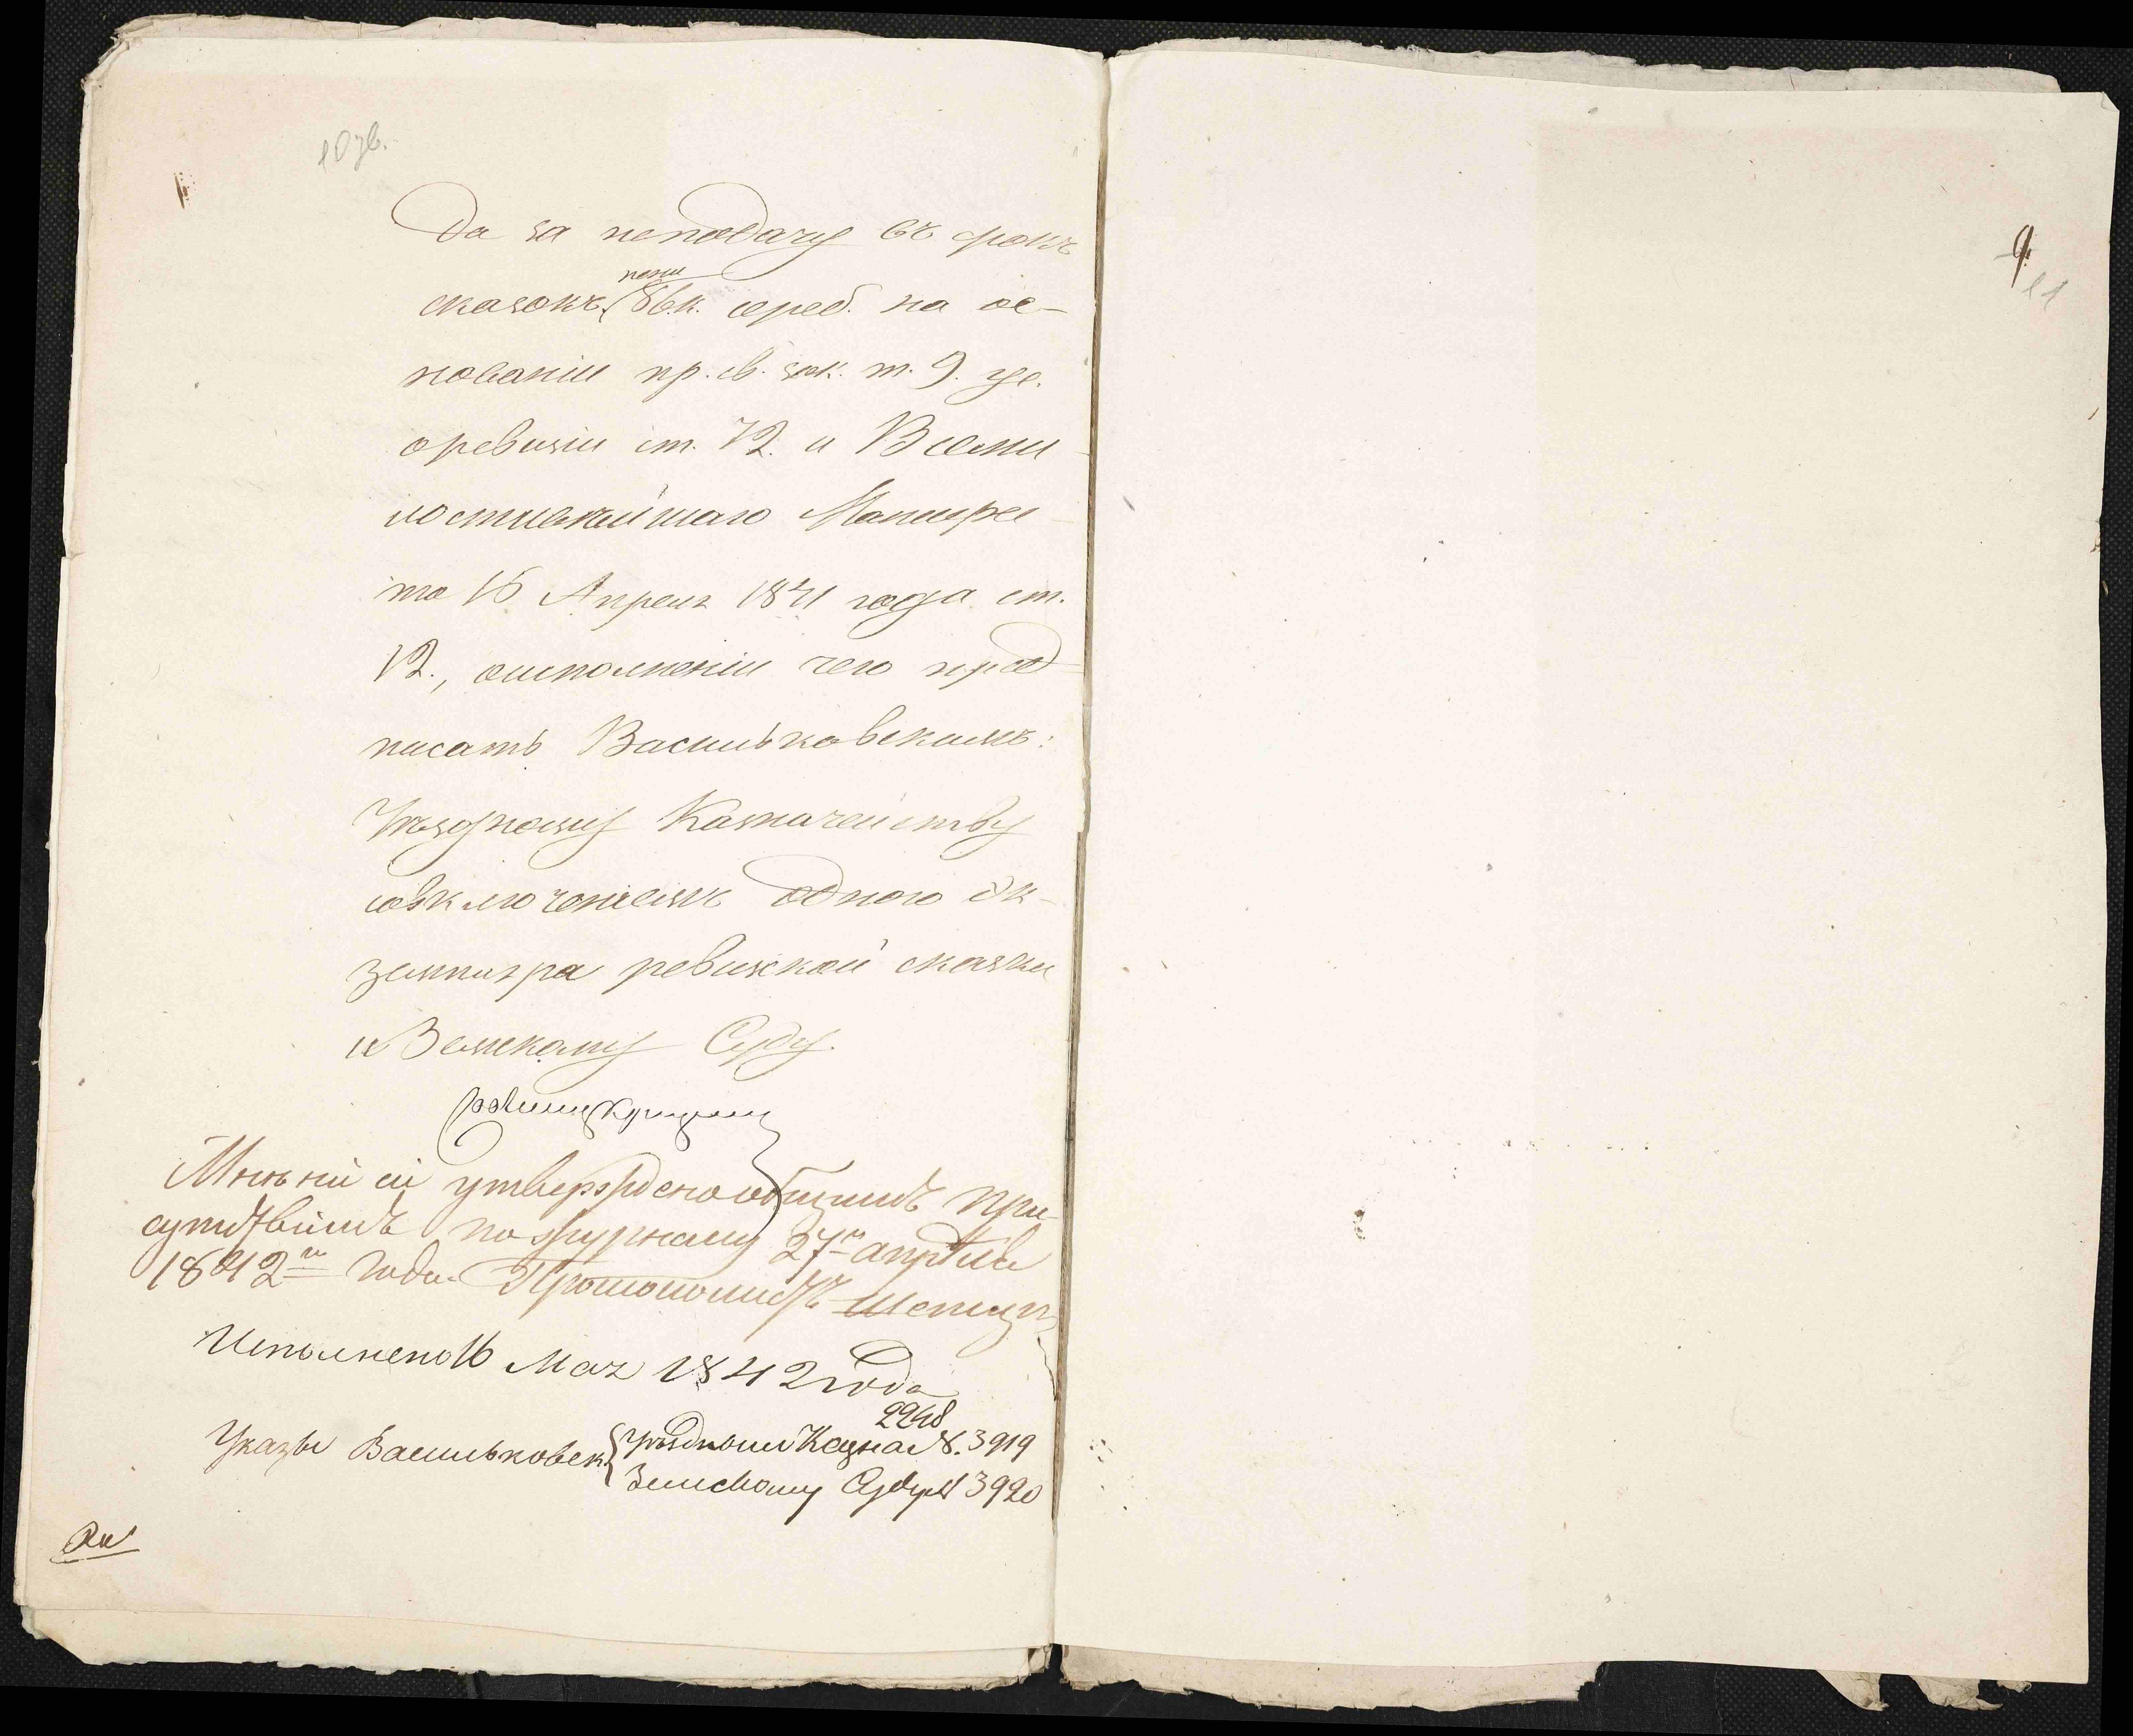 10 зв.
9
11
Да за неподачу въ срокъ
пени
сказокъ 86 к. сереб. на ос-
нованіи пр. св. зак. т. 9. ус.
о ревизіи ст. 12. и Всеми-
лостивейшаго Манифес-
та 16 Апреля 1841 года ст.
12., о исполненіи чего пред-
писать Васильковскимъ:
Уездному Казначейству
со включеніемъ одного эк-
земпляра ревизской сказки
и Земскому Суду.
Мненіи сіи утверждено общимъ при-
сутствіимъ по журналу 27го апреля
1842го года.
Исполнено 16 Мая 1842 года
2248
Указы Васильковск. Уездному Казна. №. 3919
Земскому Суду № 3920